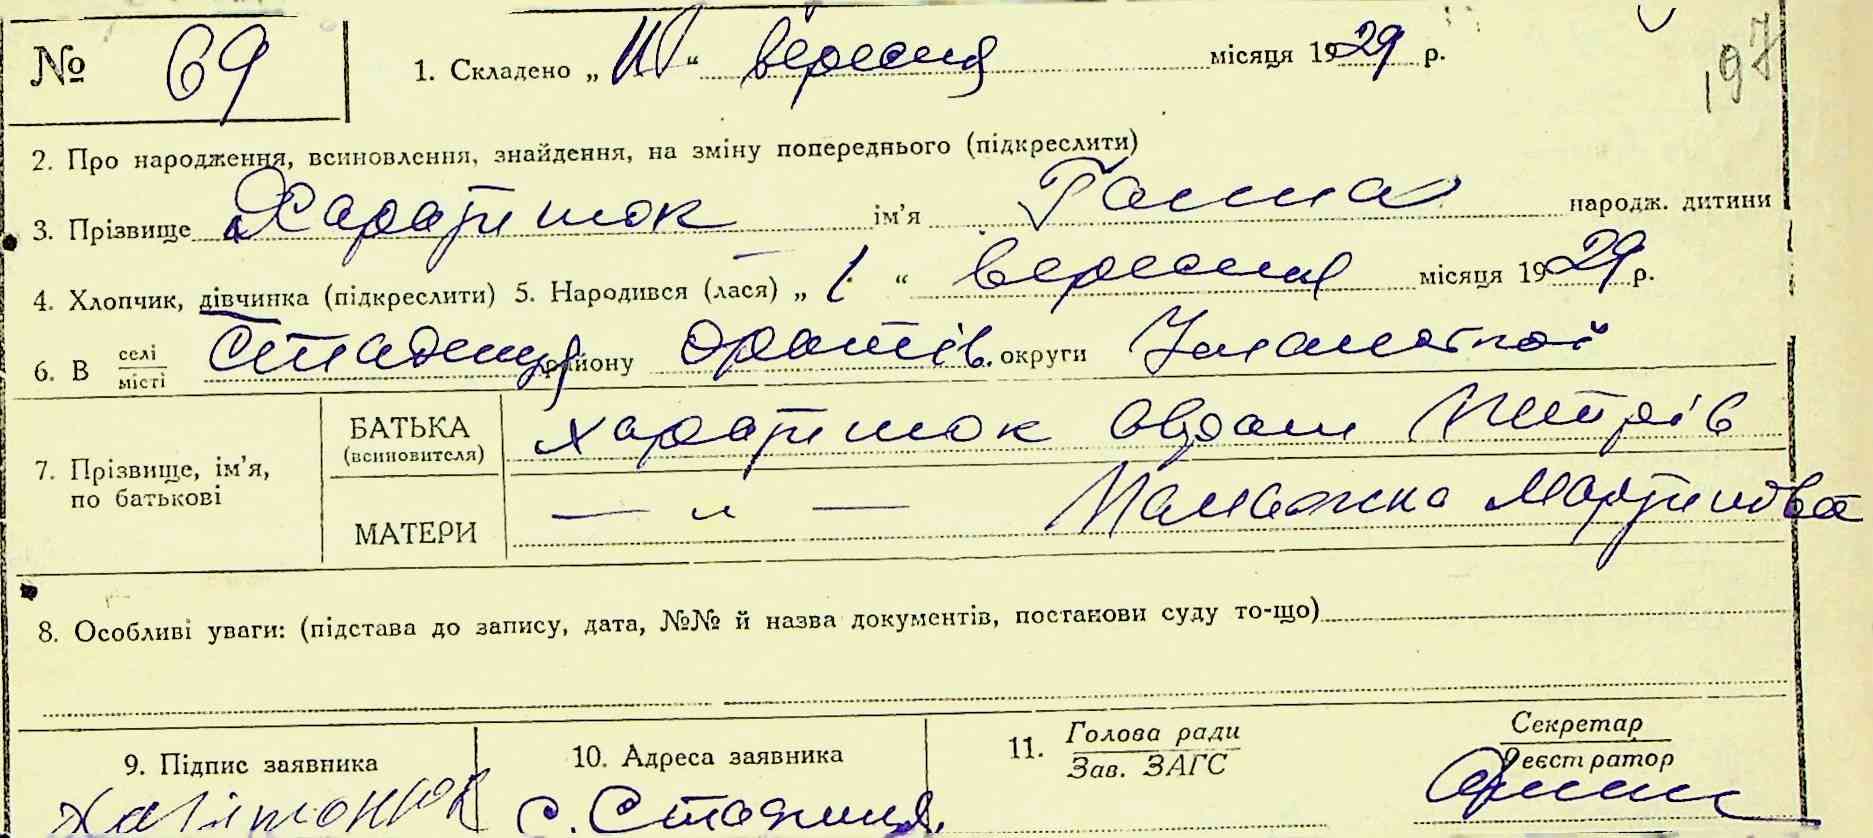 № 69 1. Складено „ “ вересня місяця 1929 р. 197
2. Про народження, всиновлення, знайдення, на зміну попереднього (підкреслити)
3. Прізвище ім'я Ганна народж. дитини
4. Хлопчик, дівчинка (підкреслити) 5. Народився (лася) „ 1 “ вересня місяця 1929 р.
6. В селі/місті району Оратів. округи
7. Прізвище, ім'я, по батькові
БАТЬКА (всиновителя) Петрів
МАТЕРИ — „ — Мартинова
8. Особливі уваги: (підстава до запису, дата, №№ й назва документів, постанови суду то-що)
9. Підпис заявника 10. Адреса заявника 11. Голова ради/Зав. ЗАГС Секретар/Реєстратор
с. Стадниця,